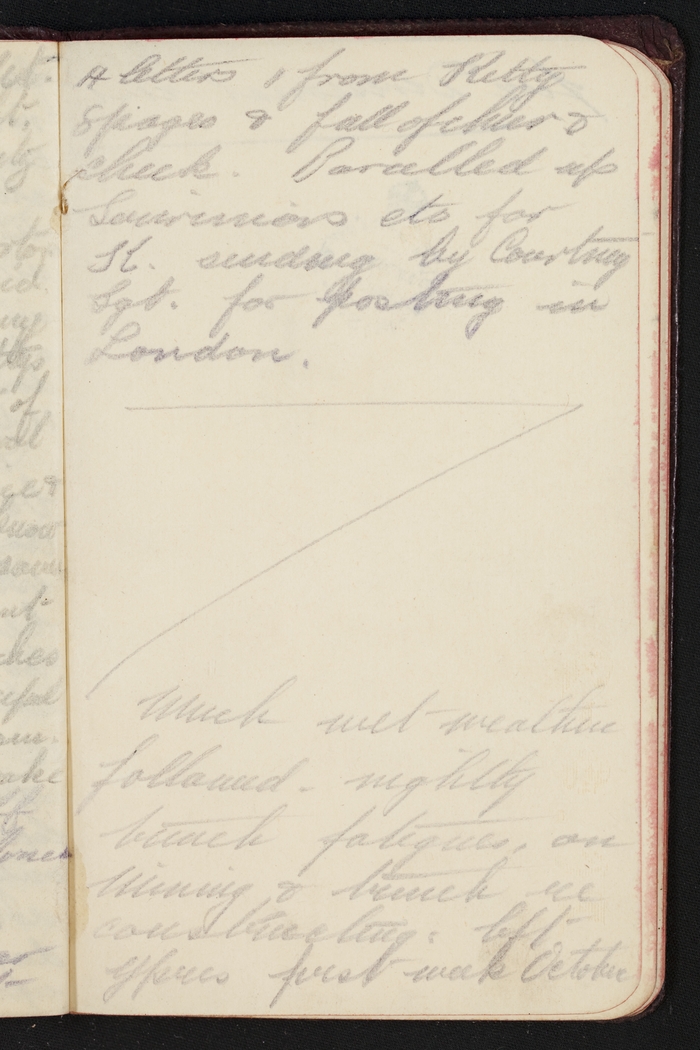 4 letters 1 from Kitty
8 pages & full of chur &
cheek. Parcelled up
Souviniors etc for
K. sending by Courtney
Sgt. for posting in
London.
Much wet weather
followed - nightly
trench fatigues, on
Mining & trench re
constructing. left
Ypres first week October